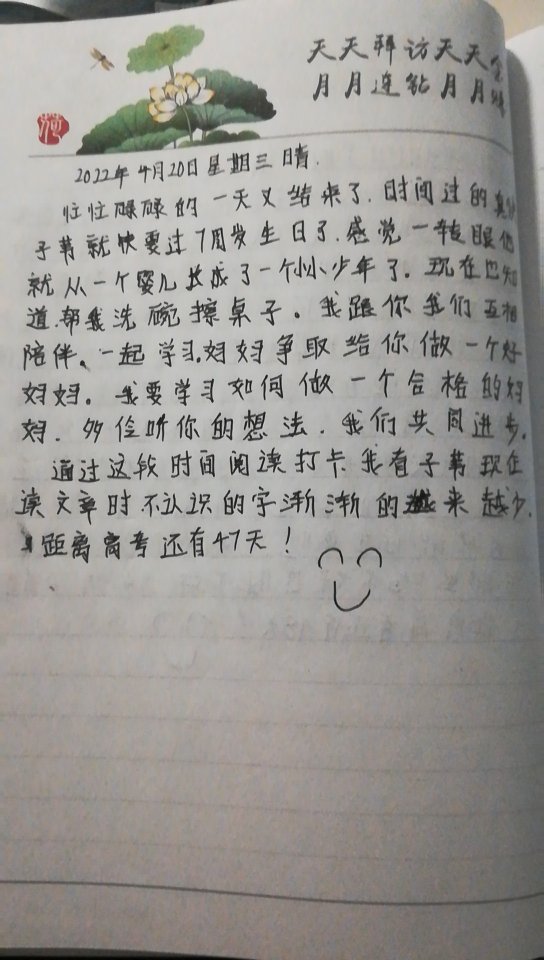 天天拜访天天
月月连钻月月
2022年4月20日星期三晴.
忙忙碌碌的一天又结束了.时间过的真
子苇就快要过7周岁生日了.感觉一转眼他
就从一个婴儿长成了一个小小少年了.现在也知
道.帮我洗碗擦桌子。我跟你我们互相
陪伴、一起学习.妈妈争取给你做一个好
妈妈。我要学习如何做一个合格的妈
妈.多倾听你的想法.我们共同进步.
通过这段时间阅读打卡.我看子苇现在
读文章时.不认识的字渐渐的越来越少.
距离高考还有47天!